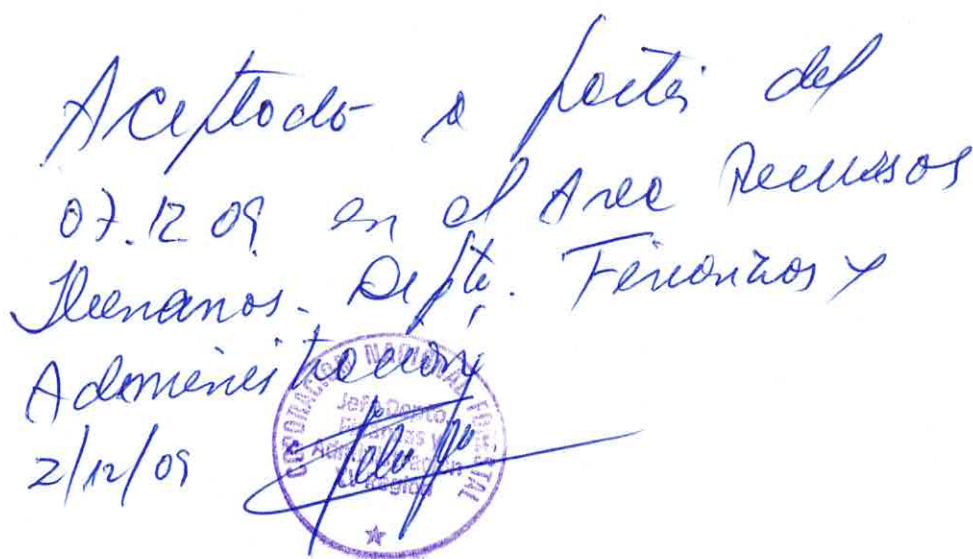 Aceptado a partir del
07.12.09 en el Area Recursos
Humanos. Depto. Finanzas y
Administración
2/12/09
CORPORACION NACIONAL FORESTAL
Jefe Depto.
Finanzas y
Administración
Región